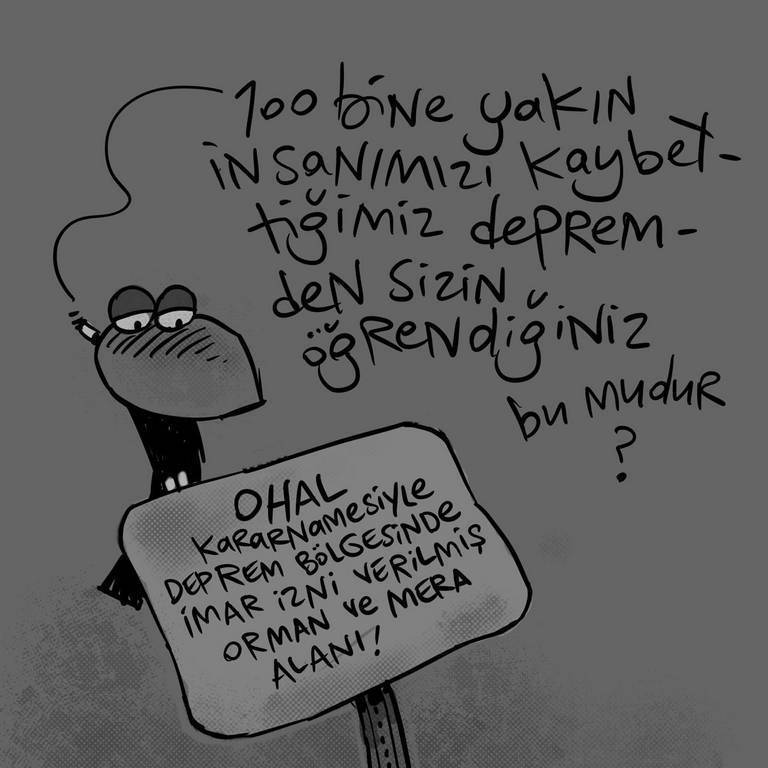 100 biNe yakIN
iNsaNIMIzI kaybet-
tiğimiz depRem-
deN sizin
öğReNdiğiNiz
bu mudur
?
OHAL
KARARNamesiyle
DEPREM BÖLGESiNDe
iMAR iZNi VERiLMiŞ
ORMAN ve MERA
ALANI!